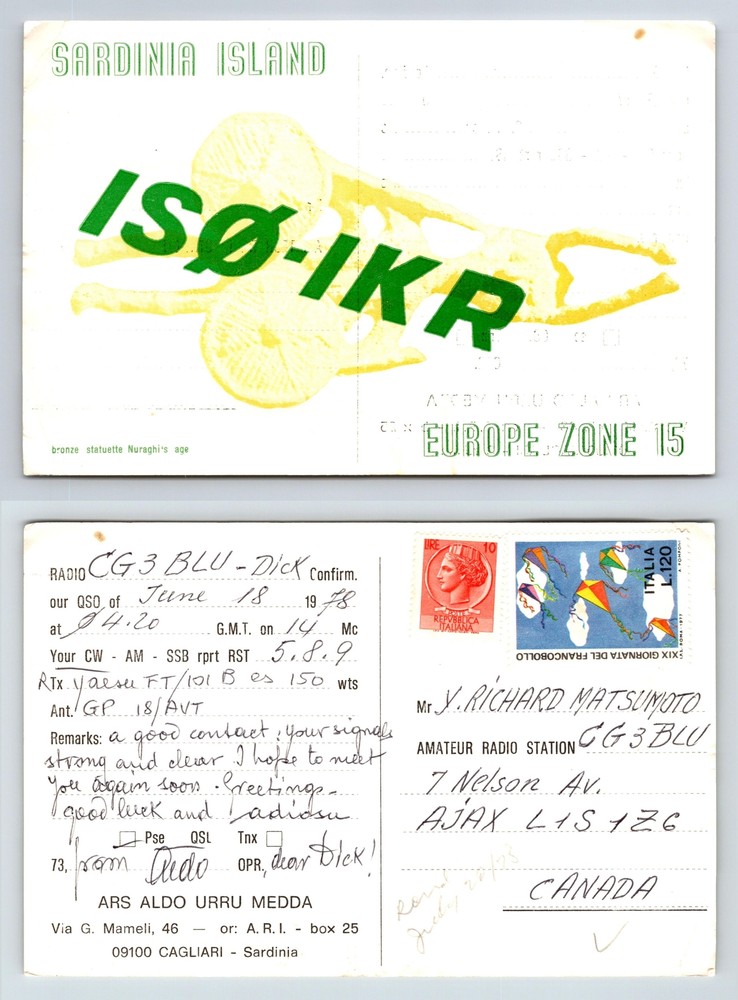 SARDINIA ISLAND
ISØ-IKR
bronze statuette Nuraghi's age
EUROPE ZONE 15
RADIO CG3BLU - Dick Confirm.
our QSO of June 18 1978
at Ø4.20 G.M.T. on 14 Mc
Your CW - AM - SSB rprt RST 5.8.9
RTx Yaesu FT/101 B es 150 wts
Ant. GP 18/AVT
Remarks: a good contact, your signals
strong and clear I hope to meet
you again soon. Greetings-
good luck and adiosu
Pse QSL Tnx
73, from Aldo OPR, dear Dick!
ARS ALDO URRU MEDDA
Via G. Mameli, 46 — or: A.R.I. - box 25
09100 CAGLIARI - Sardinia
LIRE 10
REPVBBLICA
ITALIANA
ITALIA
L.120
XIX GIORNATA DEL FRANCOBOLLO
Mr Y. RICHARD MATSUMOTO
AMATEUR RADIO STATION CG3BLU
7 Nelson Av.
AJAX L1S 1Z6
CANADA
July 20/78